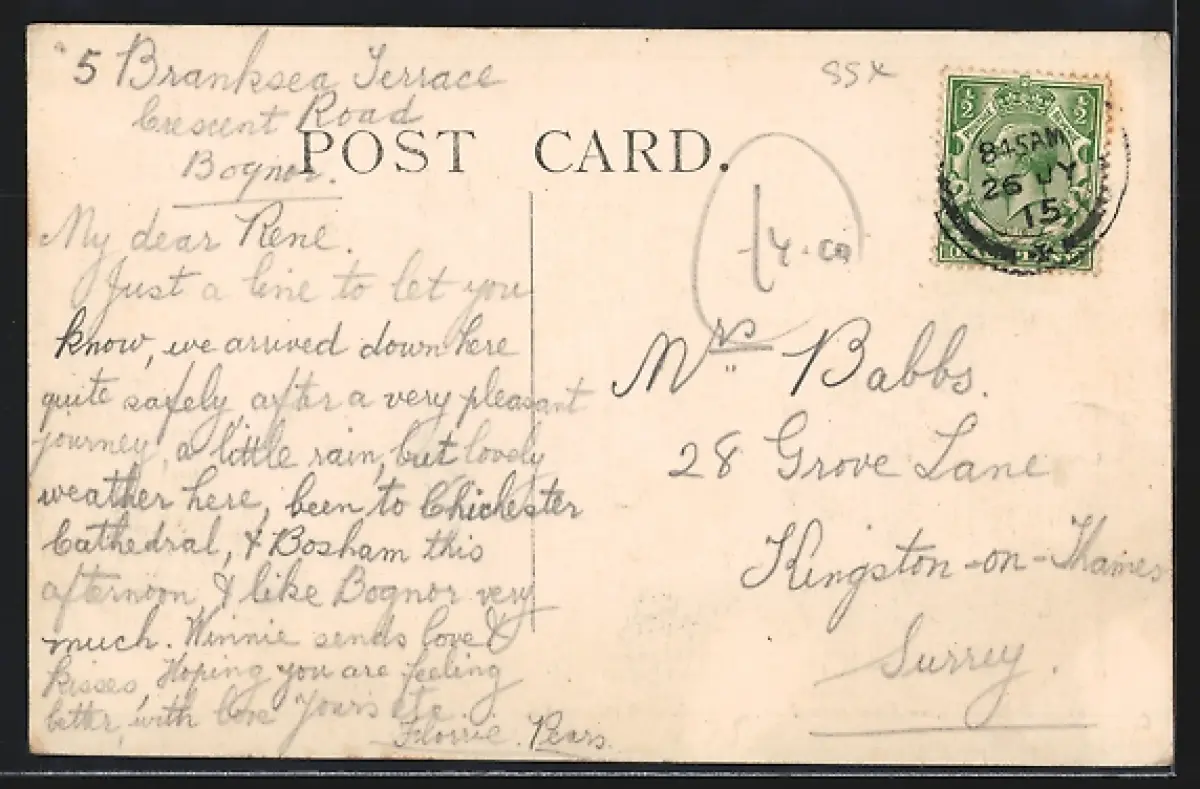 5 Branksea Terrace
Crescent Road
Bognor.
POST CARD.
My dear Rene.
Just a line to let you
know, we arrived down here
quite safely, after a very pleasant
journey, a little rain, but lovely
weather here, been to Chichester
Cathedral, & Bosham this
afternoon, I like Bognor very
much. Winnie sends love &
kisses, Hoping you are feeling
better, with love Yours etc.
Florrie. Pears.
SSX
½ ½
8 45AM
26 JY
15
Mrs Babbs.
28 Grove Lane
Kingston-on-Thames
Surrey.